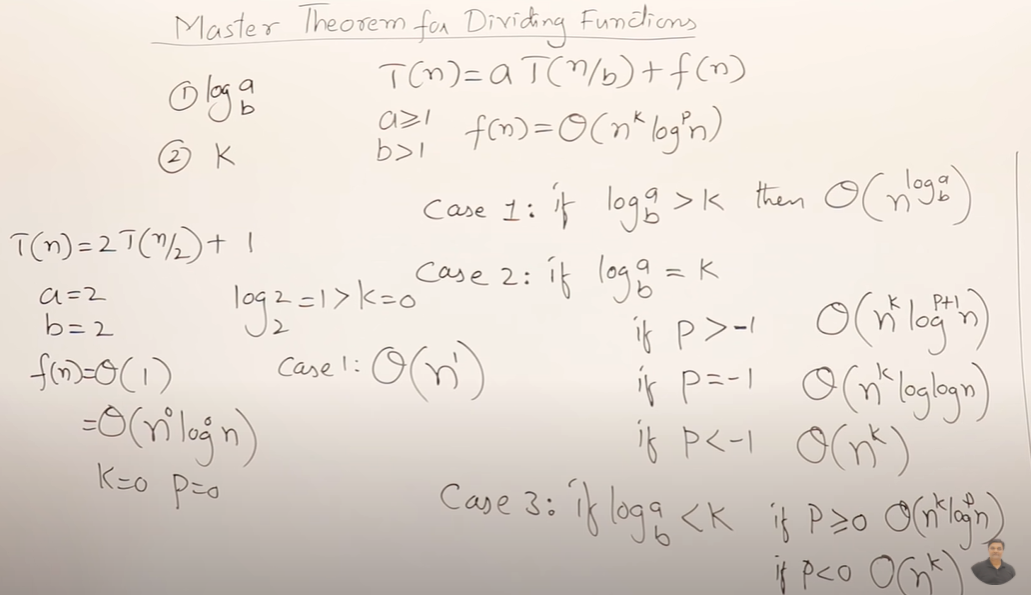 Master Theorem for Dividing Functions
① log_b^a
② K
T(n) = a T(n/b) + f(n)
a ≥ 1
b > 1
f(n) = Θ(n^k log^p n)
Case 1: if log_b^a > K then Θ(n^{log_b^a})
Case 2: if log_b^a = K
if P > -1 Θ(n^k log^{p+1} n)
if P = -1 Θ(n^k loglogn)
if P < -1 Θ(n^k)
Case 3: if log_b^a < K if P ≥ 0 Θ(n^k log^p n)
if P < 0 Θ(n^k)
T(n) = 2T(n/2) + 1
a = 2
b = 2
f(n) = Θ(1)
= Θ(n^0 log^0 n)
K=0 P=0
log_2^2 = 1 > K = 0
Case 1: Θ(n^1)